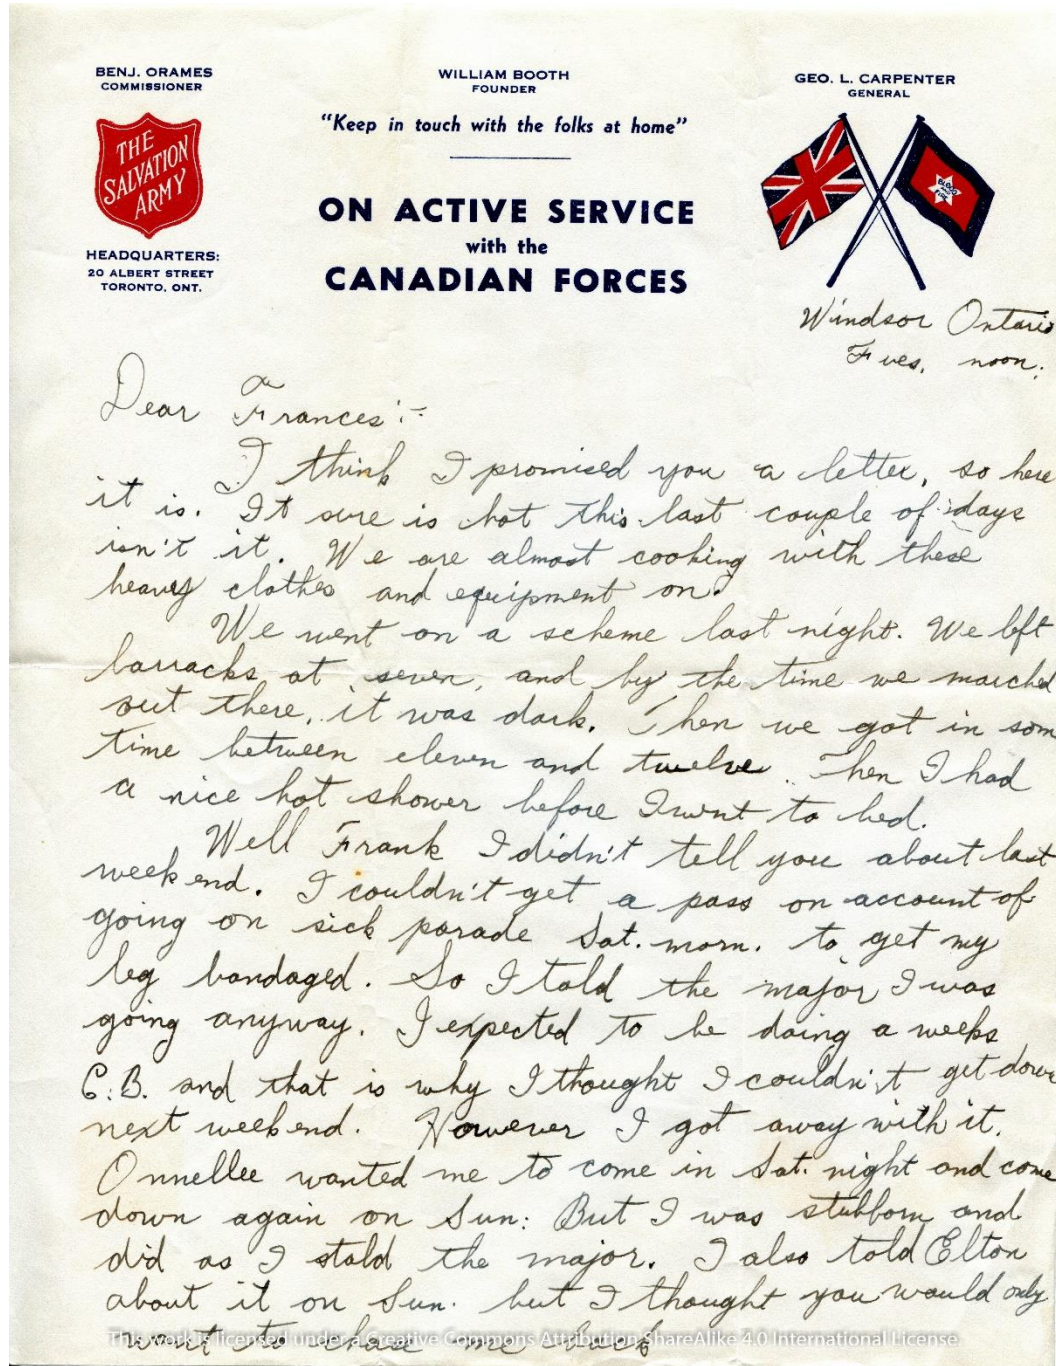 BENJ. ORAMES
COMMISSIONER
THE
SALVATION
ARMY
HEADQUARTERS:
20 ALBERT STREET
TORONTO, ONT.
WILLIAM BOOTH
FOUNDER
"Keep in touch with the folks at home"
ON ACTIVE SERVICE
with the
CANADIAN FORCES
GEO. L. CARPENTER
GENERAL
BLOOD
AND
FIRE
Windsor Ontario
Tues. noon:
Dear Frances:-
I think I promised you a letter, so here
it is. It sure is hot this last couple of days
isn't it. We are almost cooking with these
heavy clothes and equipment on.
We went on a scheme last night. We left
barracks at seven, and by the time we marched
out there, it was dark. Then we got in som
time between eleven and twelve. Then I had
a nice hot shower before I went to bed.
Well Frank I didn't tell you about last
weekend. I couldn't get a pass on account of
going on sick parade Sat. morn. to get my
leg bandaged. So I told the major I was
going anyway. I expected to be doing a weeks
C.B. and that is why I thought I couldn't get down
next weekend. However I got away with it.
Onnellee wanted me to come in Sat. night and come
down again on Sun: But I was stubborn and
did as I stold the major. I also told Elton
about it on Sun. but I thought you would only
want to chase me back
This work is licensed under a Creative Commons Attribution ShareAlike 4.0 International License.